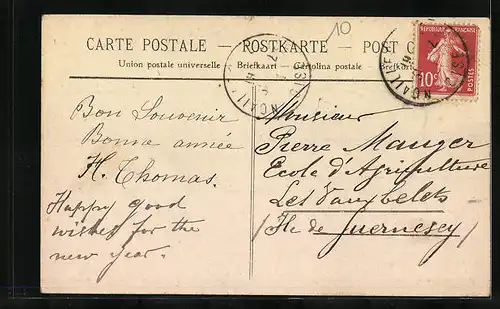 10
CARTE POSTALE – POSTKARTE – POST C
Union postale universelle Briefkaart – Cartolina postale
REPUBLIQUE FRANÇAISE
10c
POSTES
Bon Souvenir
Bonne année
H. Thomas.
Happy good
wishes for the
new year.
Monsieur
Pierre Mauger
Ecole d'Agriculture
Les Vauxbelets
Ile de Guernesey